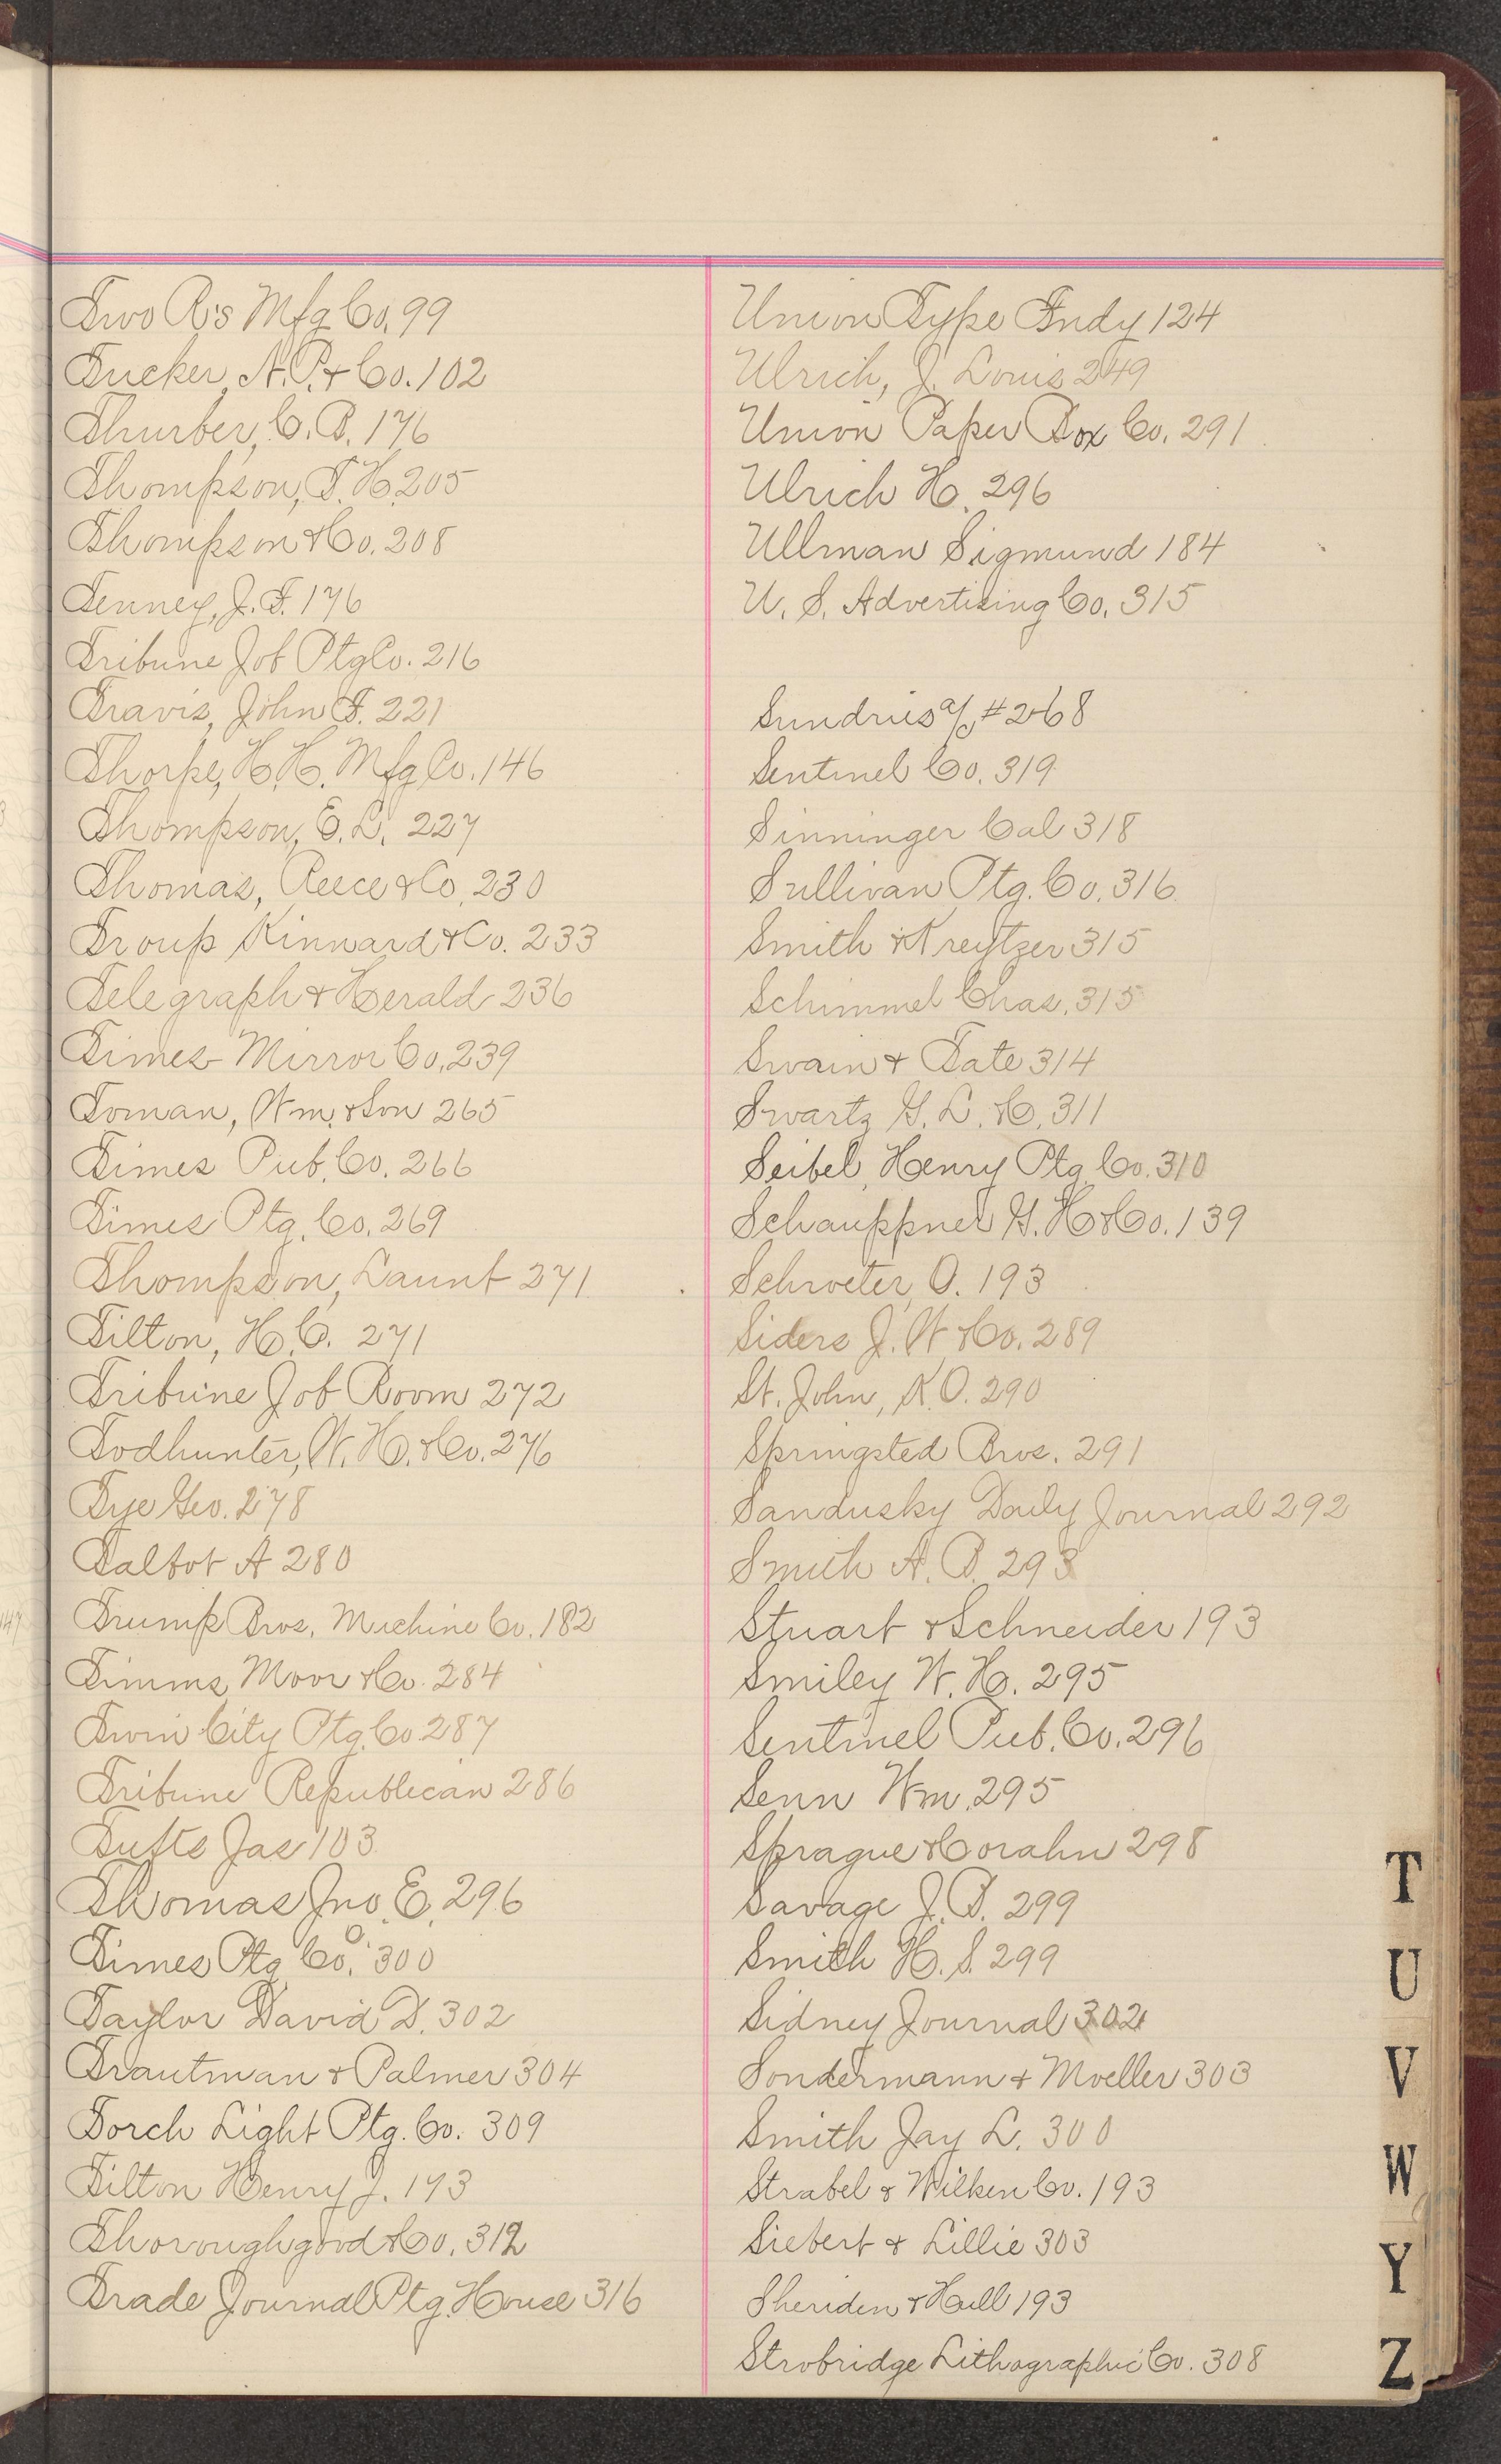 Two R's Mfg Co. 99
Tucker, N. P. & Co. 102
Thurber, C. B. 176
Thompson, T. H. 205
Thompson & Co. 208
Tenney, J. F. 176
Tribune Job Ptg Co. 216
Travis, John F. 221
Thorpe, H. H. Mfg Co. 146
Thompson, E. L. 227
Thomas, Reece & Co. 230
Troup Kinnard & Co. 233
Telegraph & Herald 236
Times-Mirror Co. 239
Toman, Wm. & Son 265
Times Pub. Co. 266
Times Ptg. Co. 269
Thompson, Launt 271
Tilton, H. C. 271
Tribune Job Room 272
Todhunter, W. H. & Co. 276
Tye Geo. 278
Talbot A 280
Trump Bros. Machine Co. 182
Timms, Moor & Co. 284
Twin City Ptg. Co. 287
Tribune Republican 286
Tufts Jas 103
Thomas Jno. E. 296
Times Ptg Co. O. 300
Taylor David D. 302
Trautman & Palmer 304
Torch Light Ptg. Co. 309
Tilton Henry J. 173
Thoroughgood & Co. 312
Trade Journal Ptg. House 316
Union Type Fndy 124
Ulrich, J. Louis 249
Union Paper Box Co. 291
Ulrich H. 296
Ullman Sigmund 184
U. S. Advertising Co. 315
Sundries a/c #268
Sentinel Co. 319
Sinninger Cal 318
Sullivan Ptg. Co. 316
Smith & 315
Schimmel Chas. 315
Swain & Tate 314
Swartz G. L. & C. 311
Seibel, Henry Ptg. Co. 310
Schauppner G. H & Co. 139
Schroeter, O. 193
Siders J. W & Co. 289
St. John, K. O. 290
Springsted Bros. 291
Sandusky Daily Journal 292
Smith A. B. 293
Stuart & Schneider 193
Smiley W. H. 295
Sentinel Pub. Co. 296
Senn Wm. 295
Sprague & Corahn 298
Savage J. B. 299
Smith H. S. 299
Sidney Journal 302
Sondermann & Moeller 303
Smith Jay L. 300
Strabel & Wilken Co. 193
Siebert & Lillie 303
Sheriden & Hull 193
Strobridge Lithographic Co. 308
T
U
V
W
Y
Z